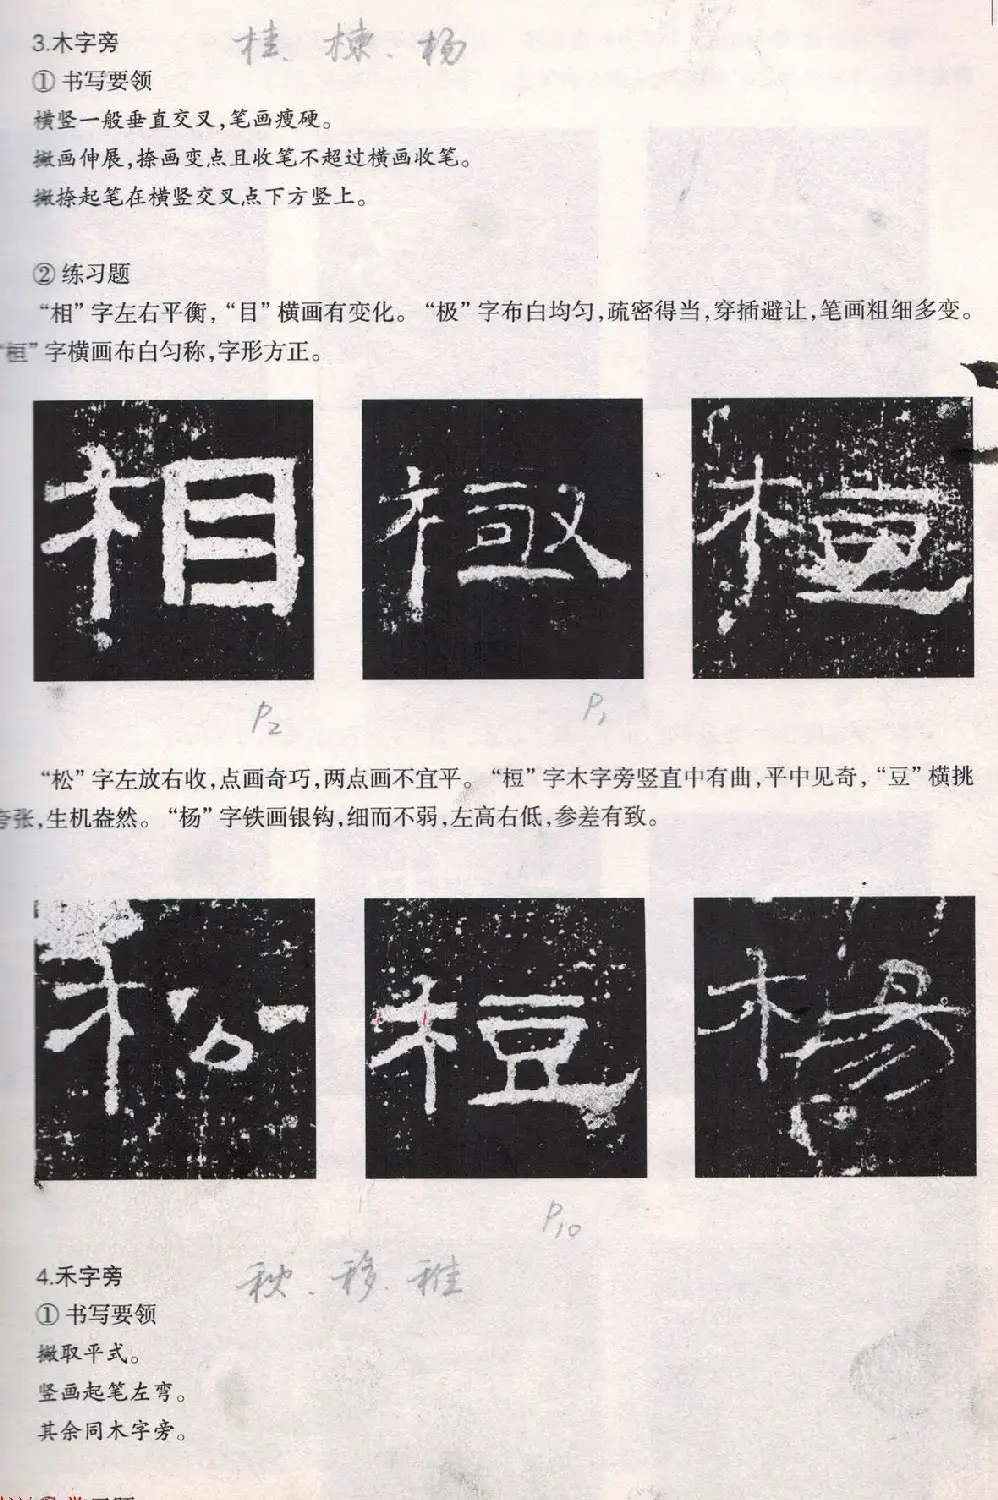 3.木字旁 桂、栋、杨
① 书写要领
横竖一般垂直交叉,笔画瘦硬。
撇画伸展,捺画变点且收笔不超过横画收笔。
撇捺起笔在横竖交叉点下方竖上。
② 练习题
“相”字左右平衡,“目”横画有变化。“极”字布白均匀,疏密得当,穿插避让,笔画粗细多变。
“桓”字横画布白匀称,字形方正。
相 極 桓
P2 P1
“松”字左放右收,点画奇巧,两点画不宜平。“桓”字木字旁竖直中有曲,平中见奇,“豆”横挑
夸张,生机盎然。“杨”字铁画银钩,细而不弱,左高右低,参差有致。
松 梪 楊
P10
4.禾字旁 秋、移、稚
① 书写要领
撇取平式。
竖画起笔左弯。
其余同木字旁。